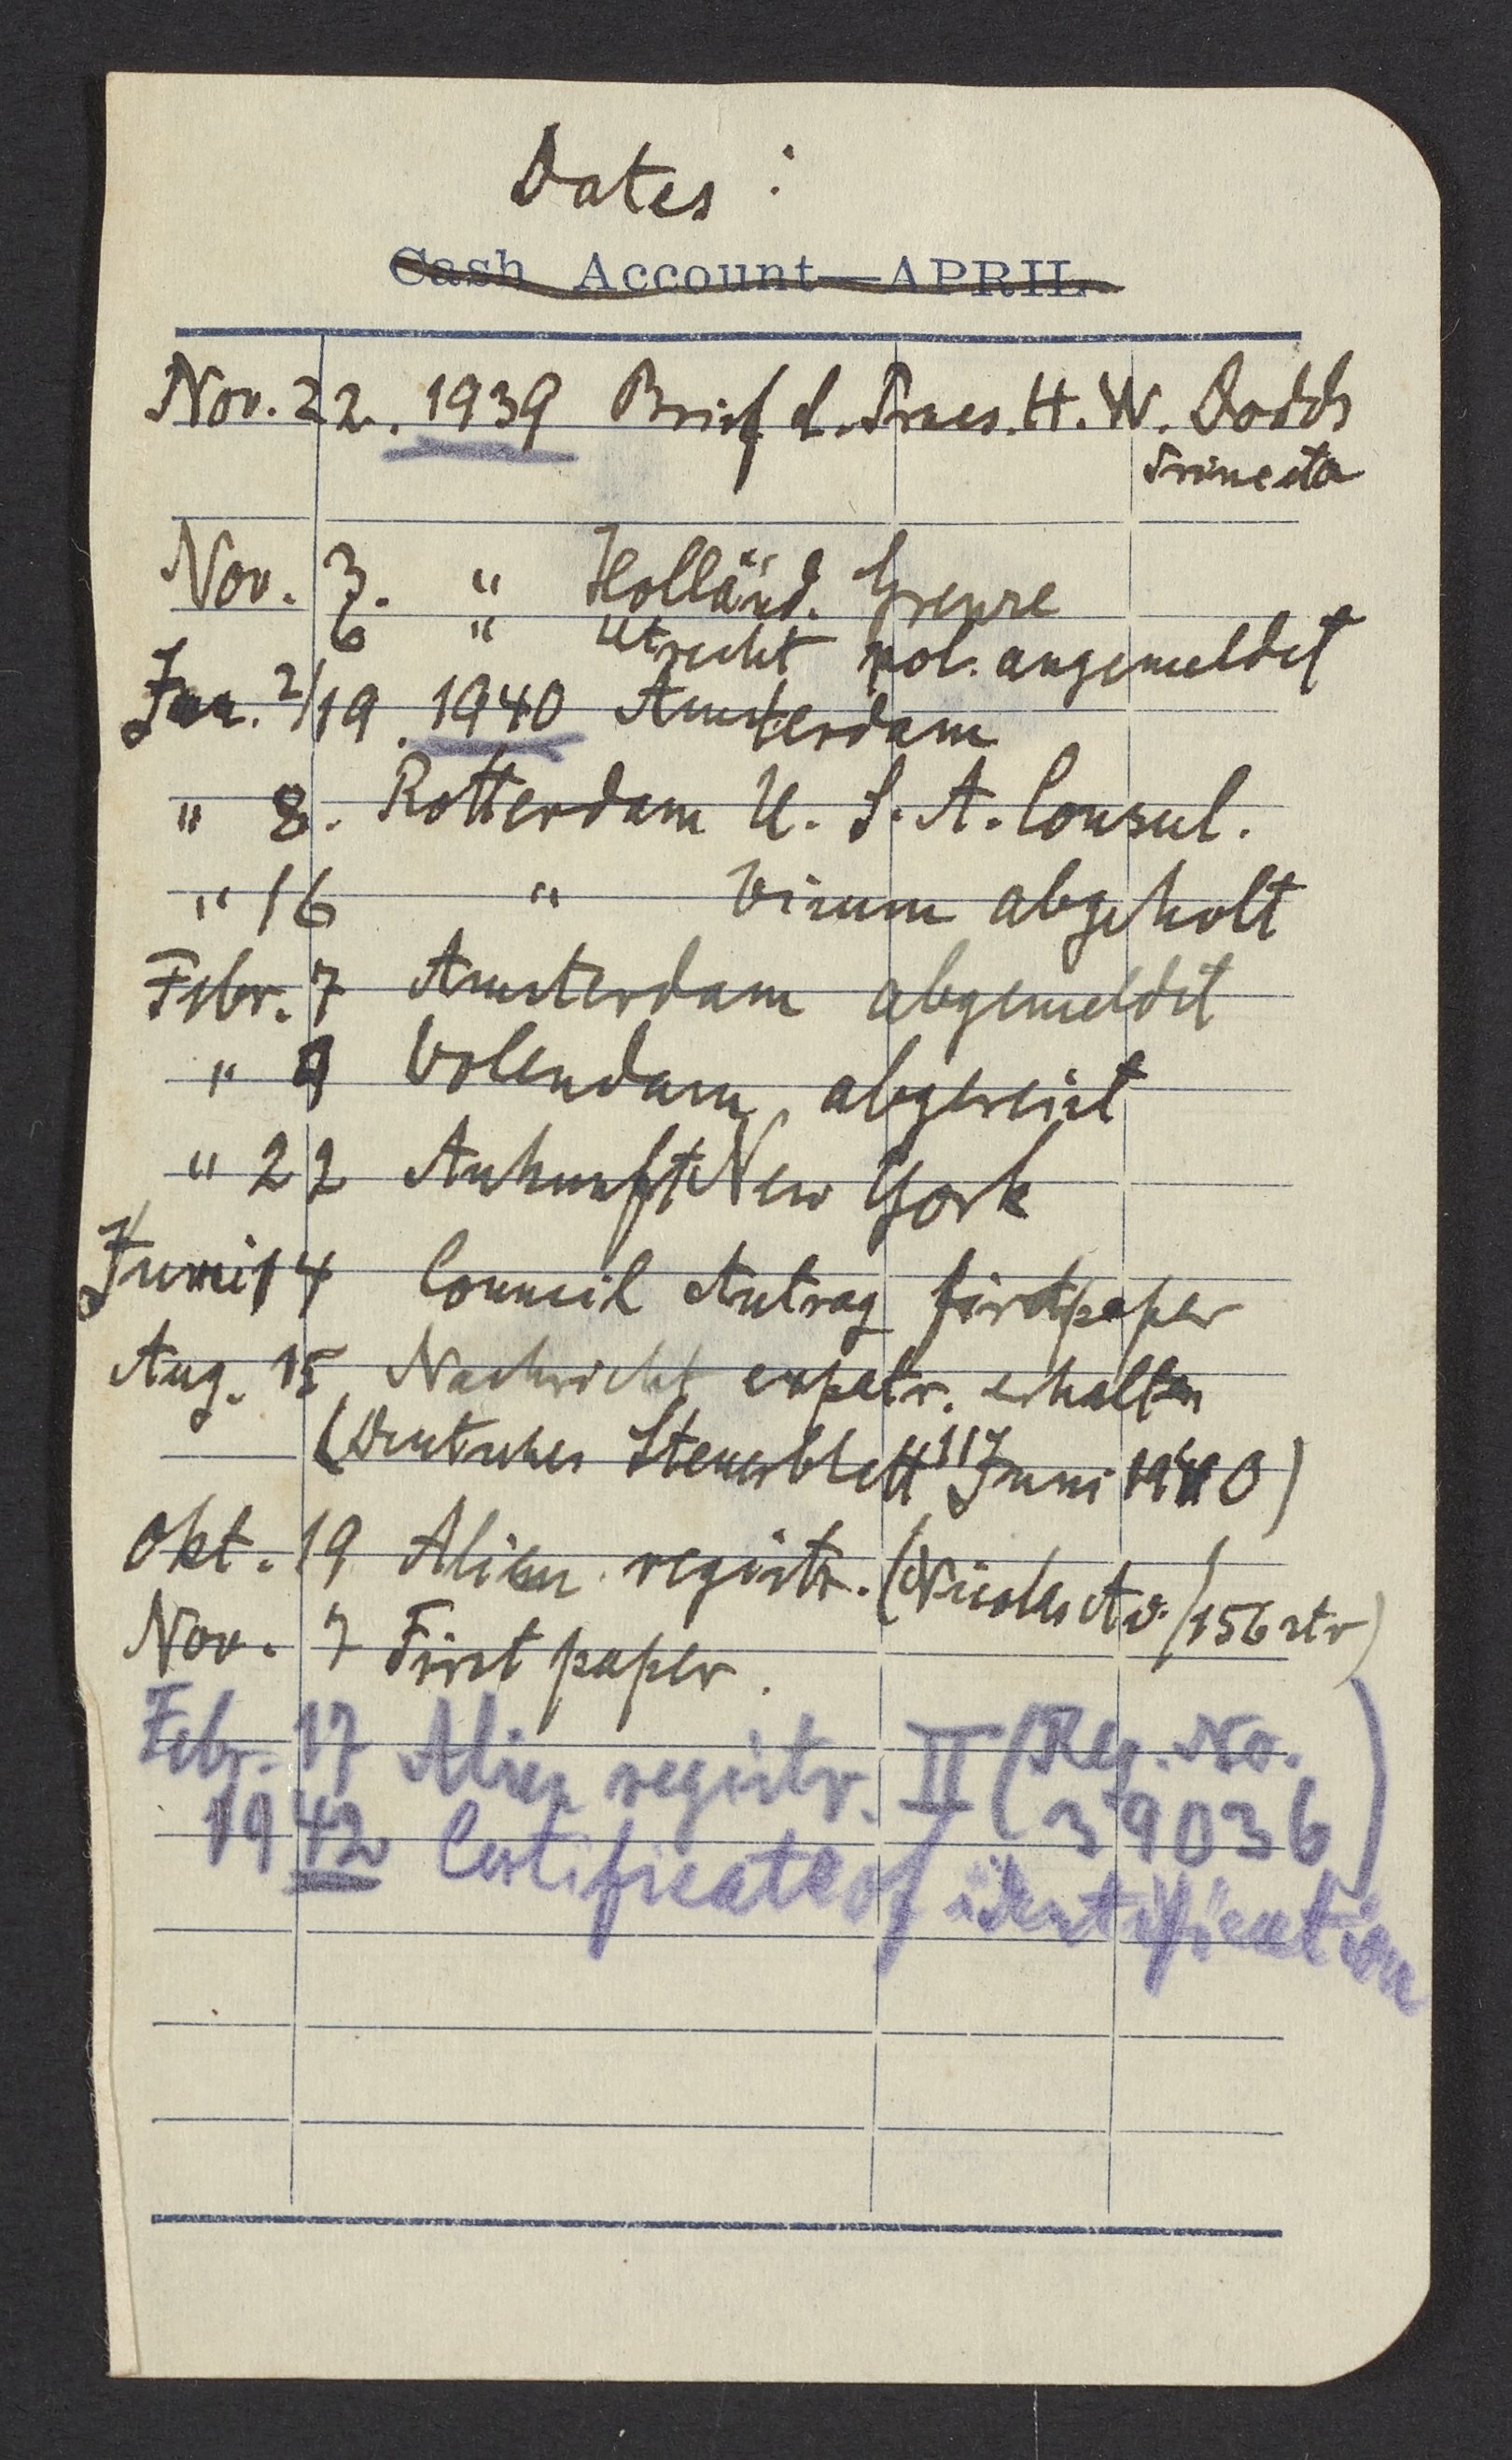 Dates :
Cash Account—APRIL
Nov. 22. 1939 Brief d. Praes. H. W. Dodds
Princeton
Nov. 3. " Holländ. Grenze
6 " Utrecht pol. angemeldet
Jan. 2/19. 1940 Amsterdam
" 8. Rotterdam U. S. A. Consul.
" 16 " Visum abgeholt
Febr. 7 Amsterdam abgemeldet
" 9 Volendam, abgereist
" 22 Ankunft New York
Juni 14 Council Antrag first paper
Aug. 15 Nachricht expatr. erhalten
(Deutsches Steuerblatt 11 Juni 1940)
Okt. 19 Alien registr. (Nicolas Av. / 156 str)
Nov. 7 First paper.
Febr. 17 Alien registr. II (Reg. No.
1942 39036)
Certificate of identification